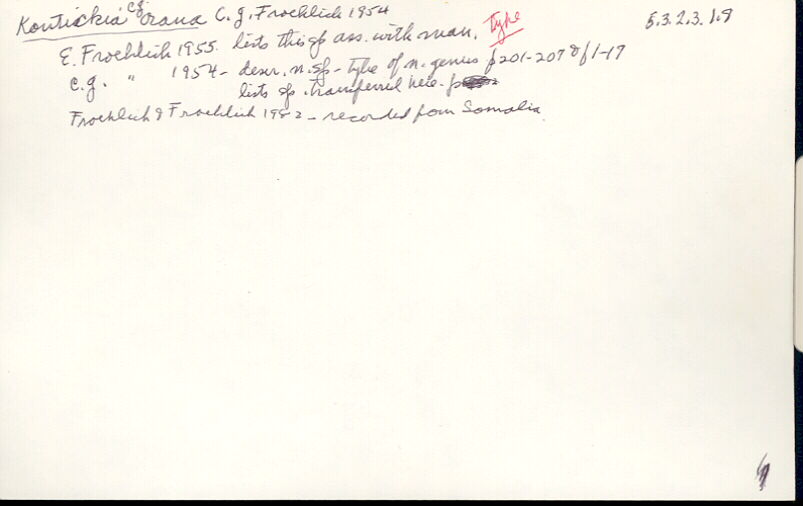 Kontickia orana C.G. Froehlich 1954 5.3.2.3.1.9
E. Froehlich 1955. lists this sp ass. with man. Type
C.G. " 1954 - descr. n. sp - type of n. genus p 201-207 & f 1-17
lists sp. transferred here.
Froehlich & Froehlich 1982 - recorded from Somalia.